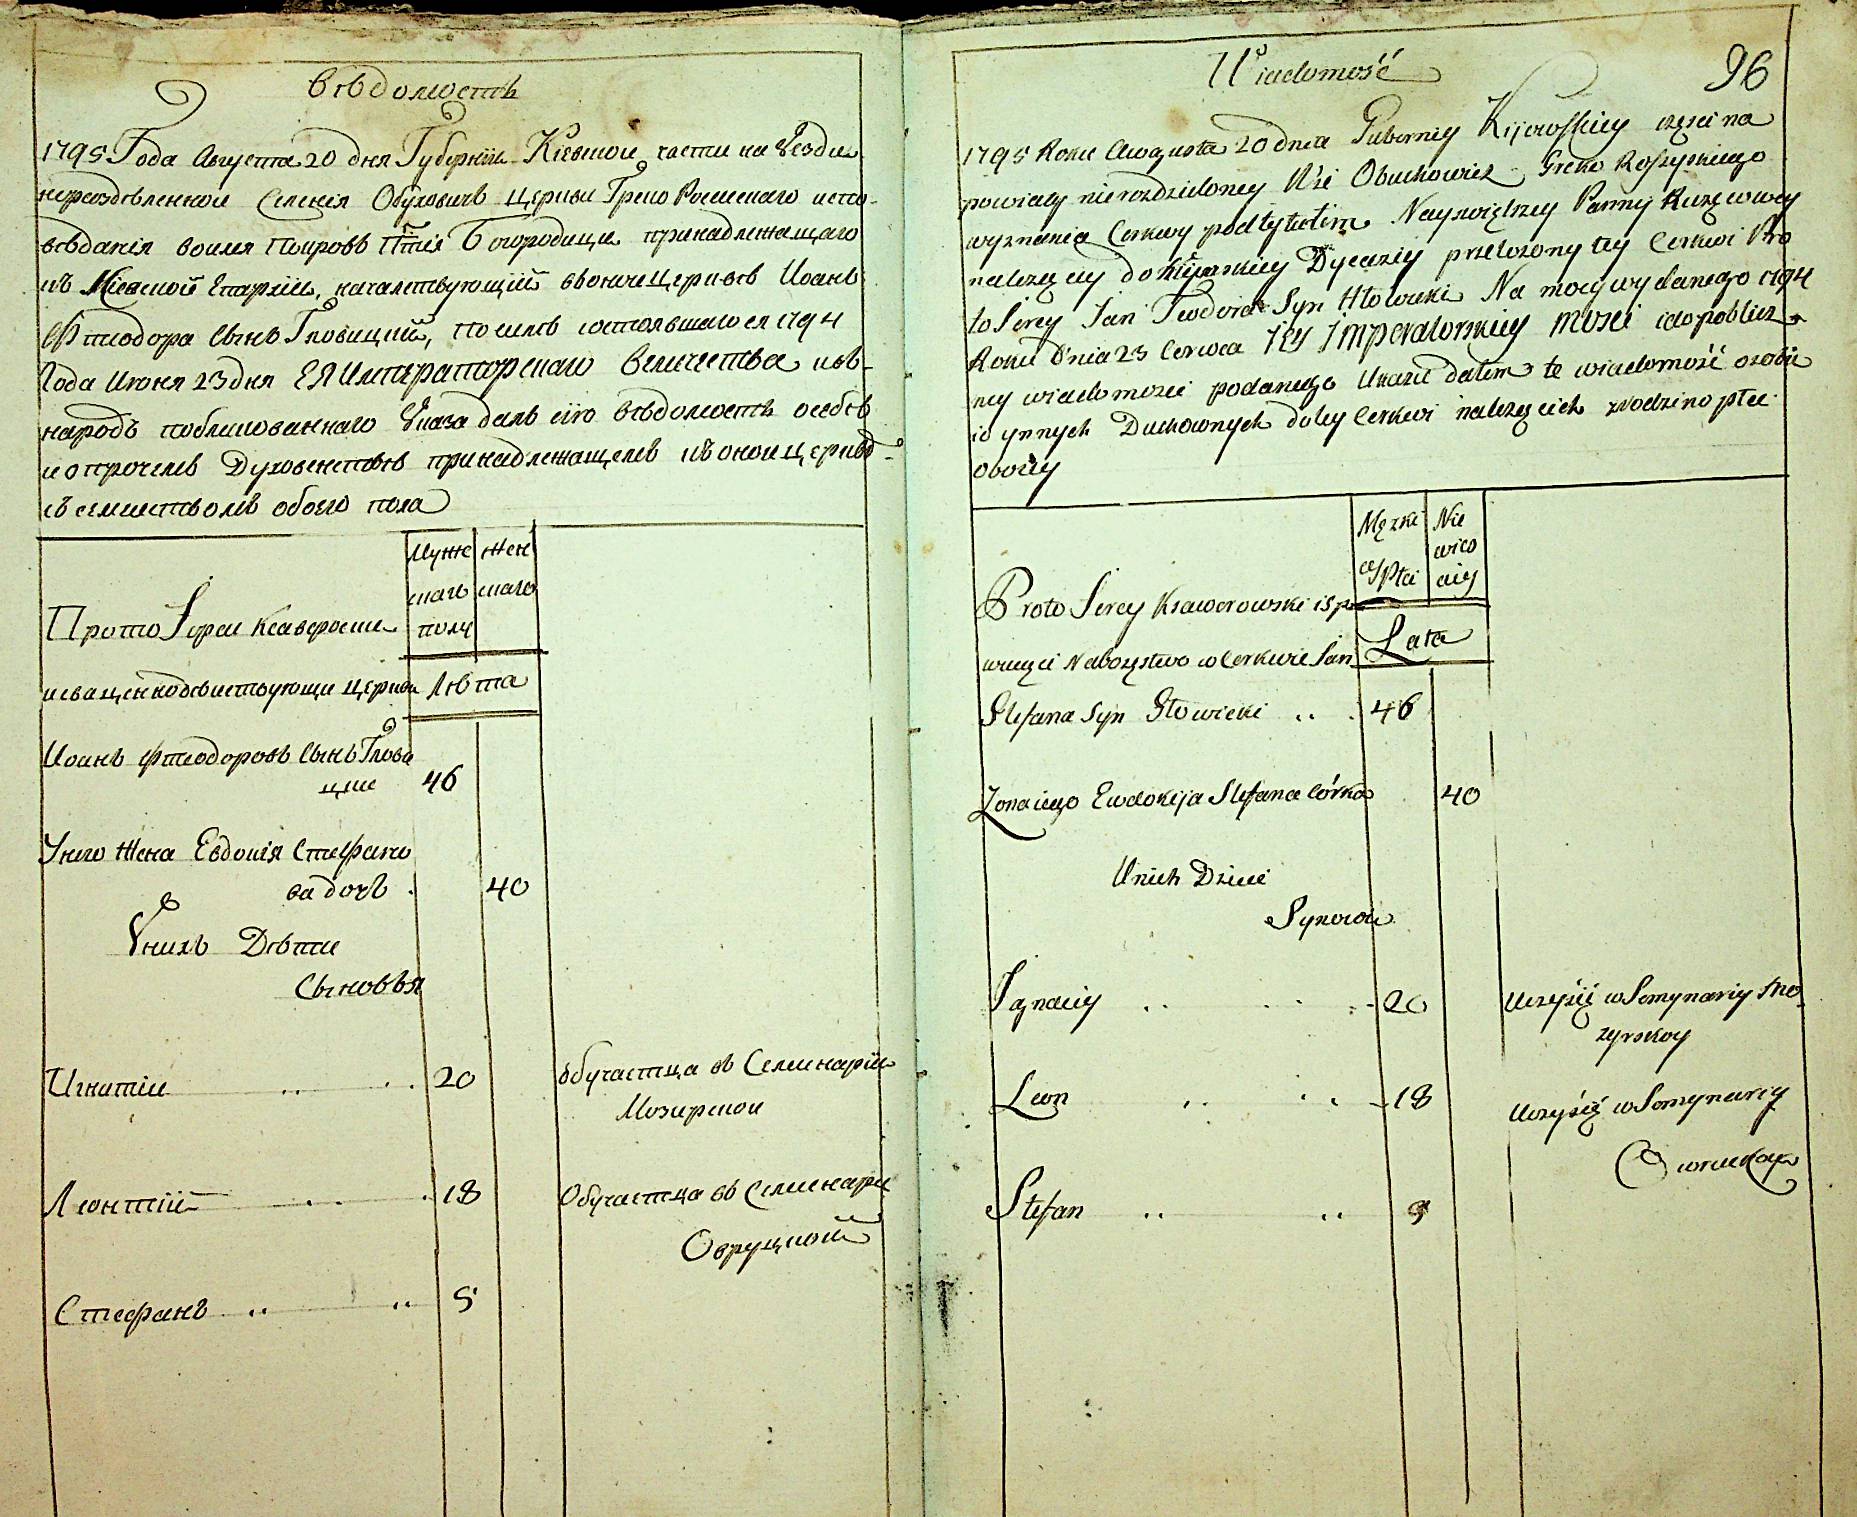 Вѣдомость
1795 Года Августа 20 дня Губерніи Кіевскои части на Уезди
нераздѣленнои Селенія Обуховичъ Церкви Греко Россискаго испо-
вѣданія воимя Покровъ Пт҃ія Богородици принадлежащаго
къ Кіевской Епархіи, началствующій въоноице Церквѣ Иоанъ
Фтеодора Сынъ Гловицкий, по силѣ состоявшагося 1794
Года Июня 23 дня ЕЯ Императорскаго Величества въ
народъ поблекованнаго Указа далъ сію Вѣдомость особѣ
и опрочемъ Духовенствѣ принадлежащемъ къ онои церквѣ
съ семиством обоего пола
Муже Жен
скаго скаго
Прото Іереи Ксаверовски полу
исвященнодѣиствующи церкви Лѣта
Иоанъ Фтеодоровъ Сынъ Глови
цки 46
Унего Жена Евдокія Стефано
ва дочъ . 40
Унихъ Дѣти
Сыновья
Игнатіи .. . . 20 обучаетца въ Семинаріи
Мозирскои
Леонтій .. . 18 Обучаетца въ Семинари
Овруцкой
Стефанъ .. .. 5
Wiadomość 96
1795 Roku Awgusta 20 dnia Gubernij Kijowskiey części na
powiaty nierozdzieloney Wsi Obuchowicz Greko Rossyskiego
wyznania Cerkwy pod tytułem Nayswiętszey Panny Ruzcowey
należącey do Kijowskiey Dyecezij przełożony tey Cerkwi Pro
to Jerey Jan Teodora Syn Hłowicki Na mocy wydanego 1794
Roku Dnia 23 Czerwca JEY Imperatorskiey Mości do poblicz
ney wiadomosci podanego Ukazu dałem te wiadomość osobie
i o ynnych Duchownych do tey Cerkwi należących zrodzino płci
oboiey
Męzki Nie
wieś
ey Płci ciey
Proto Jerey Ksawerowski i sp
wuiący Nabożstwo w Cerkwie Jan Lata
Stefana Syn Głowicki .. . 46
Zona iego Ewdokija Stefana Córka 40
U nich Dzieci
Synowie
Ignaciy . . . .. 20 Uczyśię w Semynariy Mo
zyrskoy
Leon .. . . 18 Uczyśię w Semynariy
Owruckoy
Stefan .. .. 5